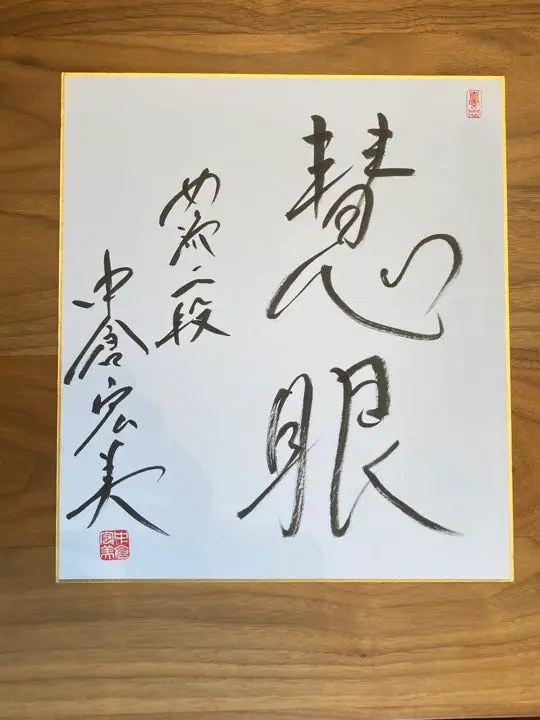 慧眼
女流二段
中倉宏美
中倉
宏美